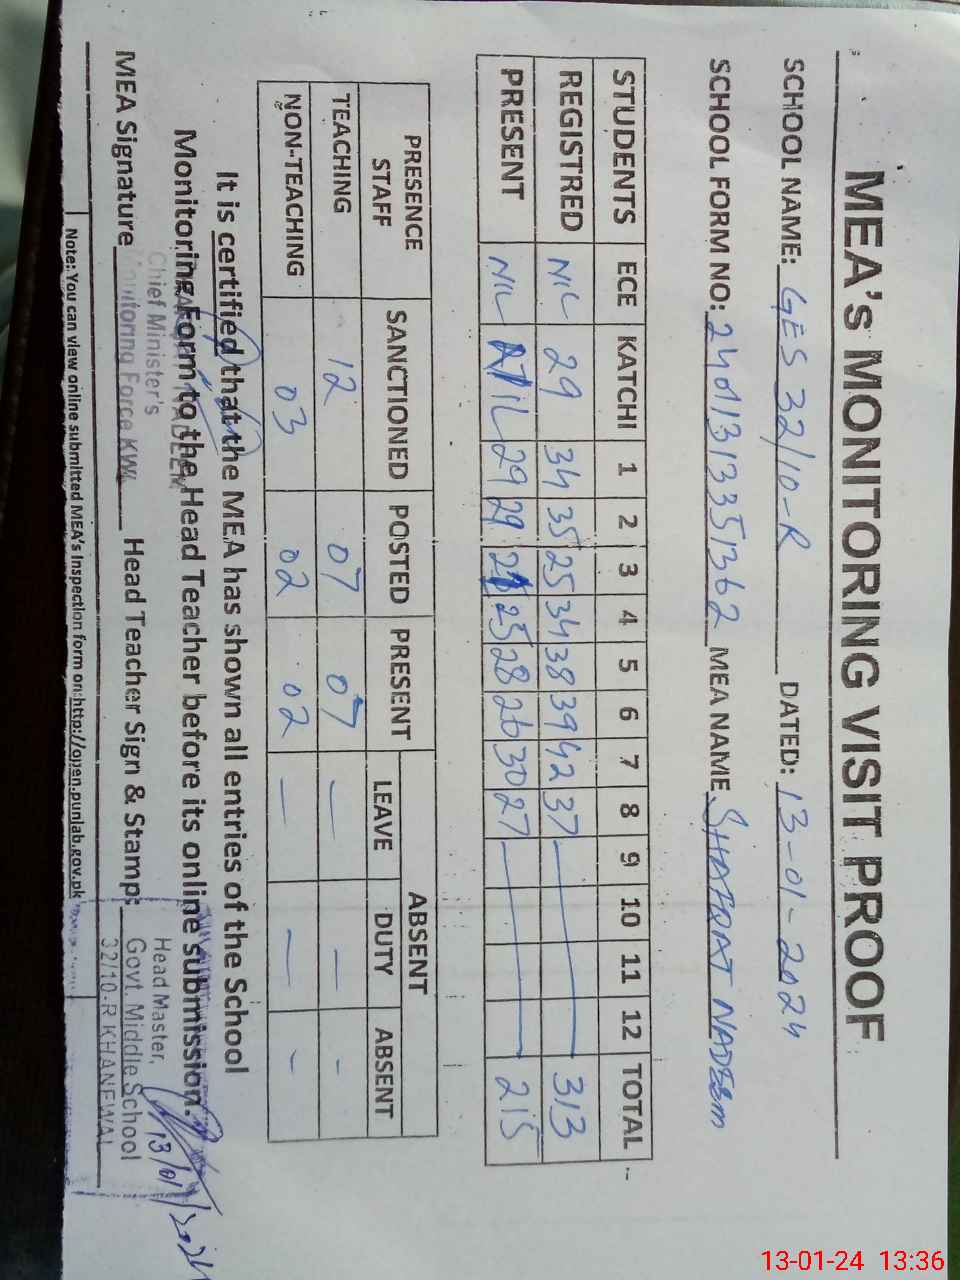 MEA's MONITORING VISIT PROOF
SCHOOL NAME: GES 32/10-R DATED: 13-01-2024
SCHOOL FORM NO: 24d1313351362 MEA NAME SHAFQAT NADEEM
STUDENTS ECE KATCHI 1 2 3 4 5 6 7 8 9 10 11 12 TOTAL
REGISTRED NIL 29 34 35 25 34 38 39 42 37 313
PRESENT NIL NIL 29 29 25 28 26 30 27 215
PRESENCE STAFF SANCTIONED POSTED PRESENT ABSENT
LEAVE DUTY ABSENT
TEACHING 12 07 07 — — -
NON-TEACHING 03 02 02 — — -
It is certified that the MEA has shown all entries of the School
Monitoring Form to the Head Teacher before its online submission.
NADEEM
Chief Minister's
Monitoring Force KWL
MEA Signature Head Teacher Sign & Stamp:
Head Master,
Govt. Middle School
32/10-R KHANEWAL
13/01/2024
Note: You can view online submitted MEA's Inspection form on:http://open.punjab.gov.pk
13-01-24 13:36